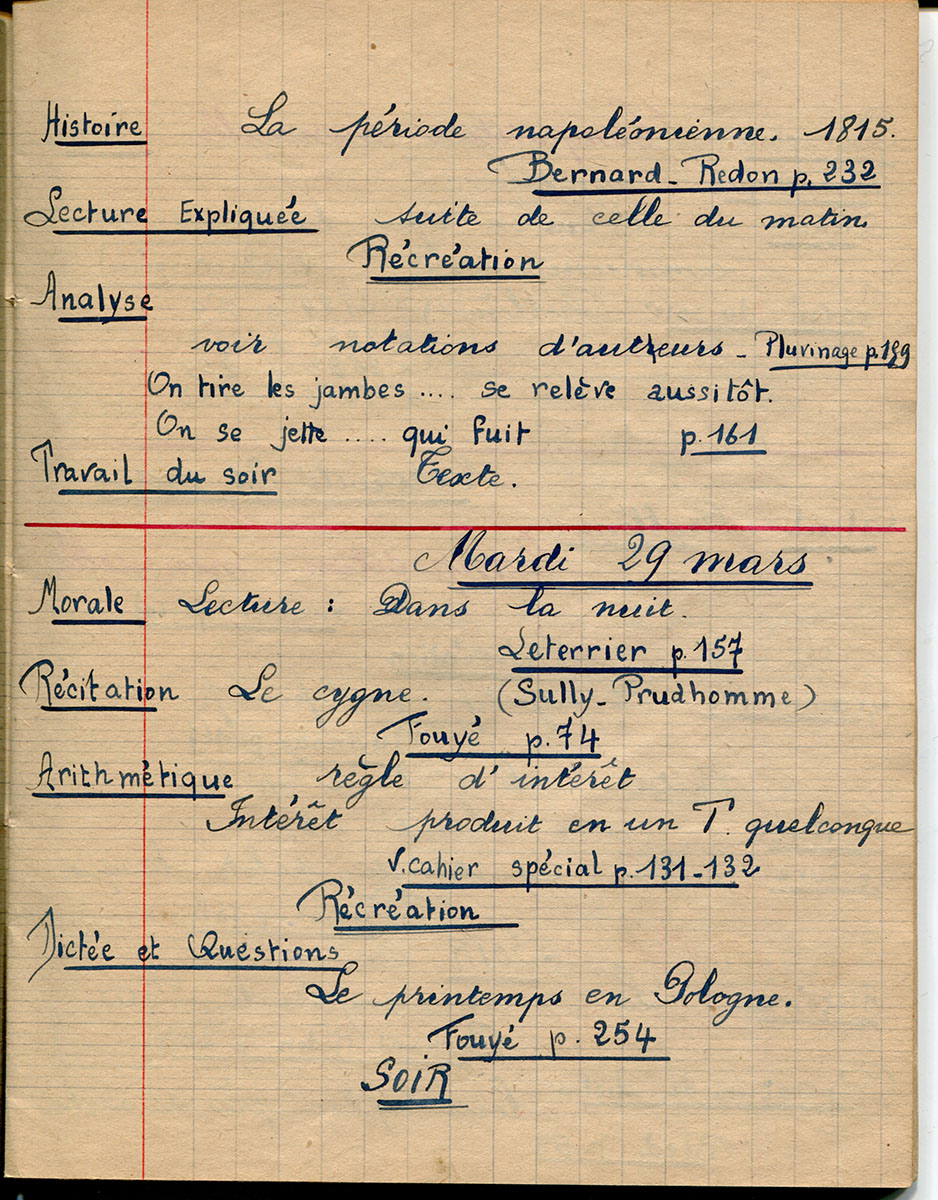 Histoire La période napoléonienne. 1815.
Bernard - Redon p. 232
Lecture Expliquée suite de celle du matin
Récréation
Analyse
voir notations d'auteurs - Pluvinage p.
On tire les jambes .... se relève aussitôt.
On se jette .... qui fuit p. 161
Travail du soir Texte.
Mardi 29 mars
Morale Lecture : Dans la nuit.
Leterrier p. 157
Récitation Le cygne. (Sully - Prudhomme)
Fouyé p. 74
Arithmétique règle d'intérêt
Intérêt produit en un T. quelconque
V. cahier spécial p. 131 - 132
Récréation
Dictée et Questions
Le printemps en Pologne.
Fouyé p. 254
SOIR